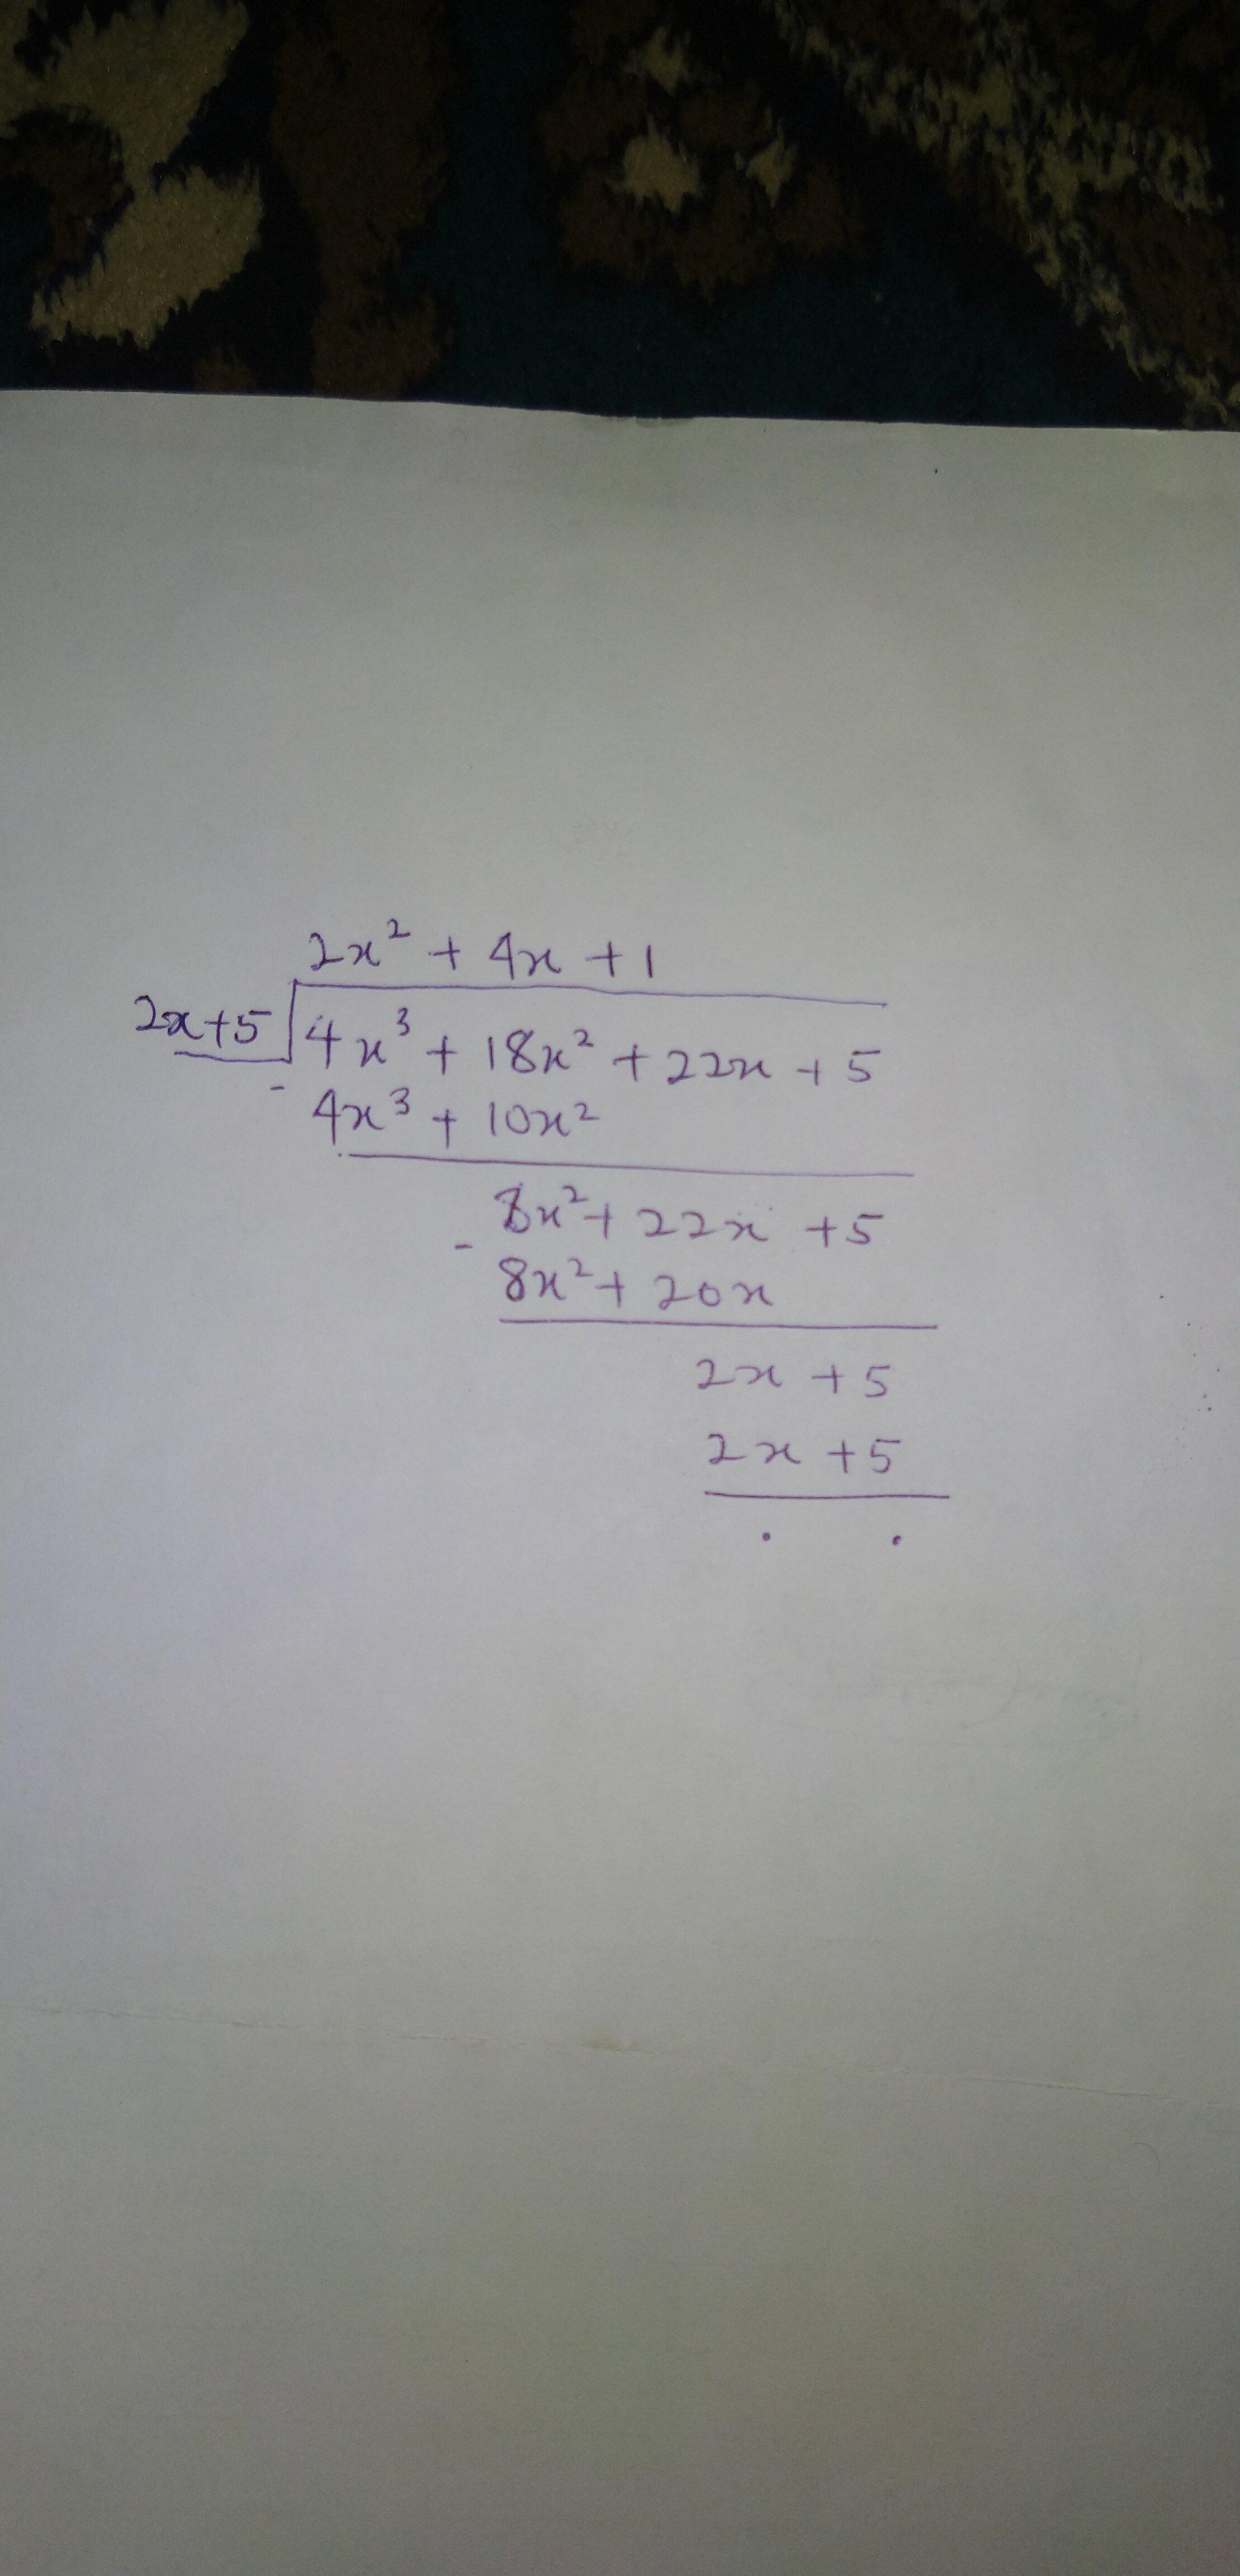 2x² + 4x + 1
2x+5 4x³ + 18x² + 22x + 5
- 4x³ + 10x²
8x² + 22x + 5
- 8x² + 20x
2x + 5
2x + 5
. .